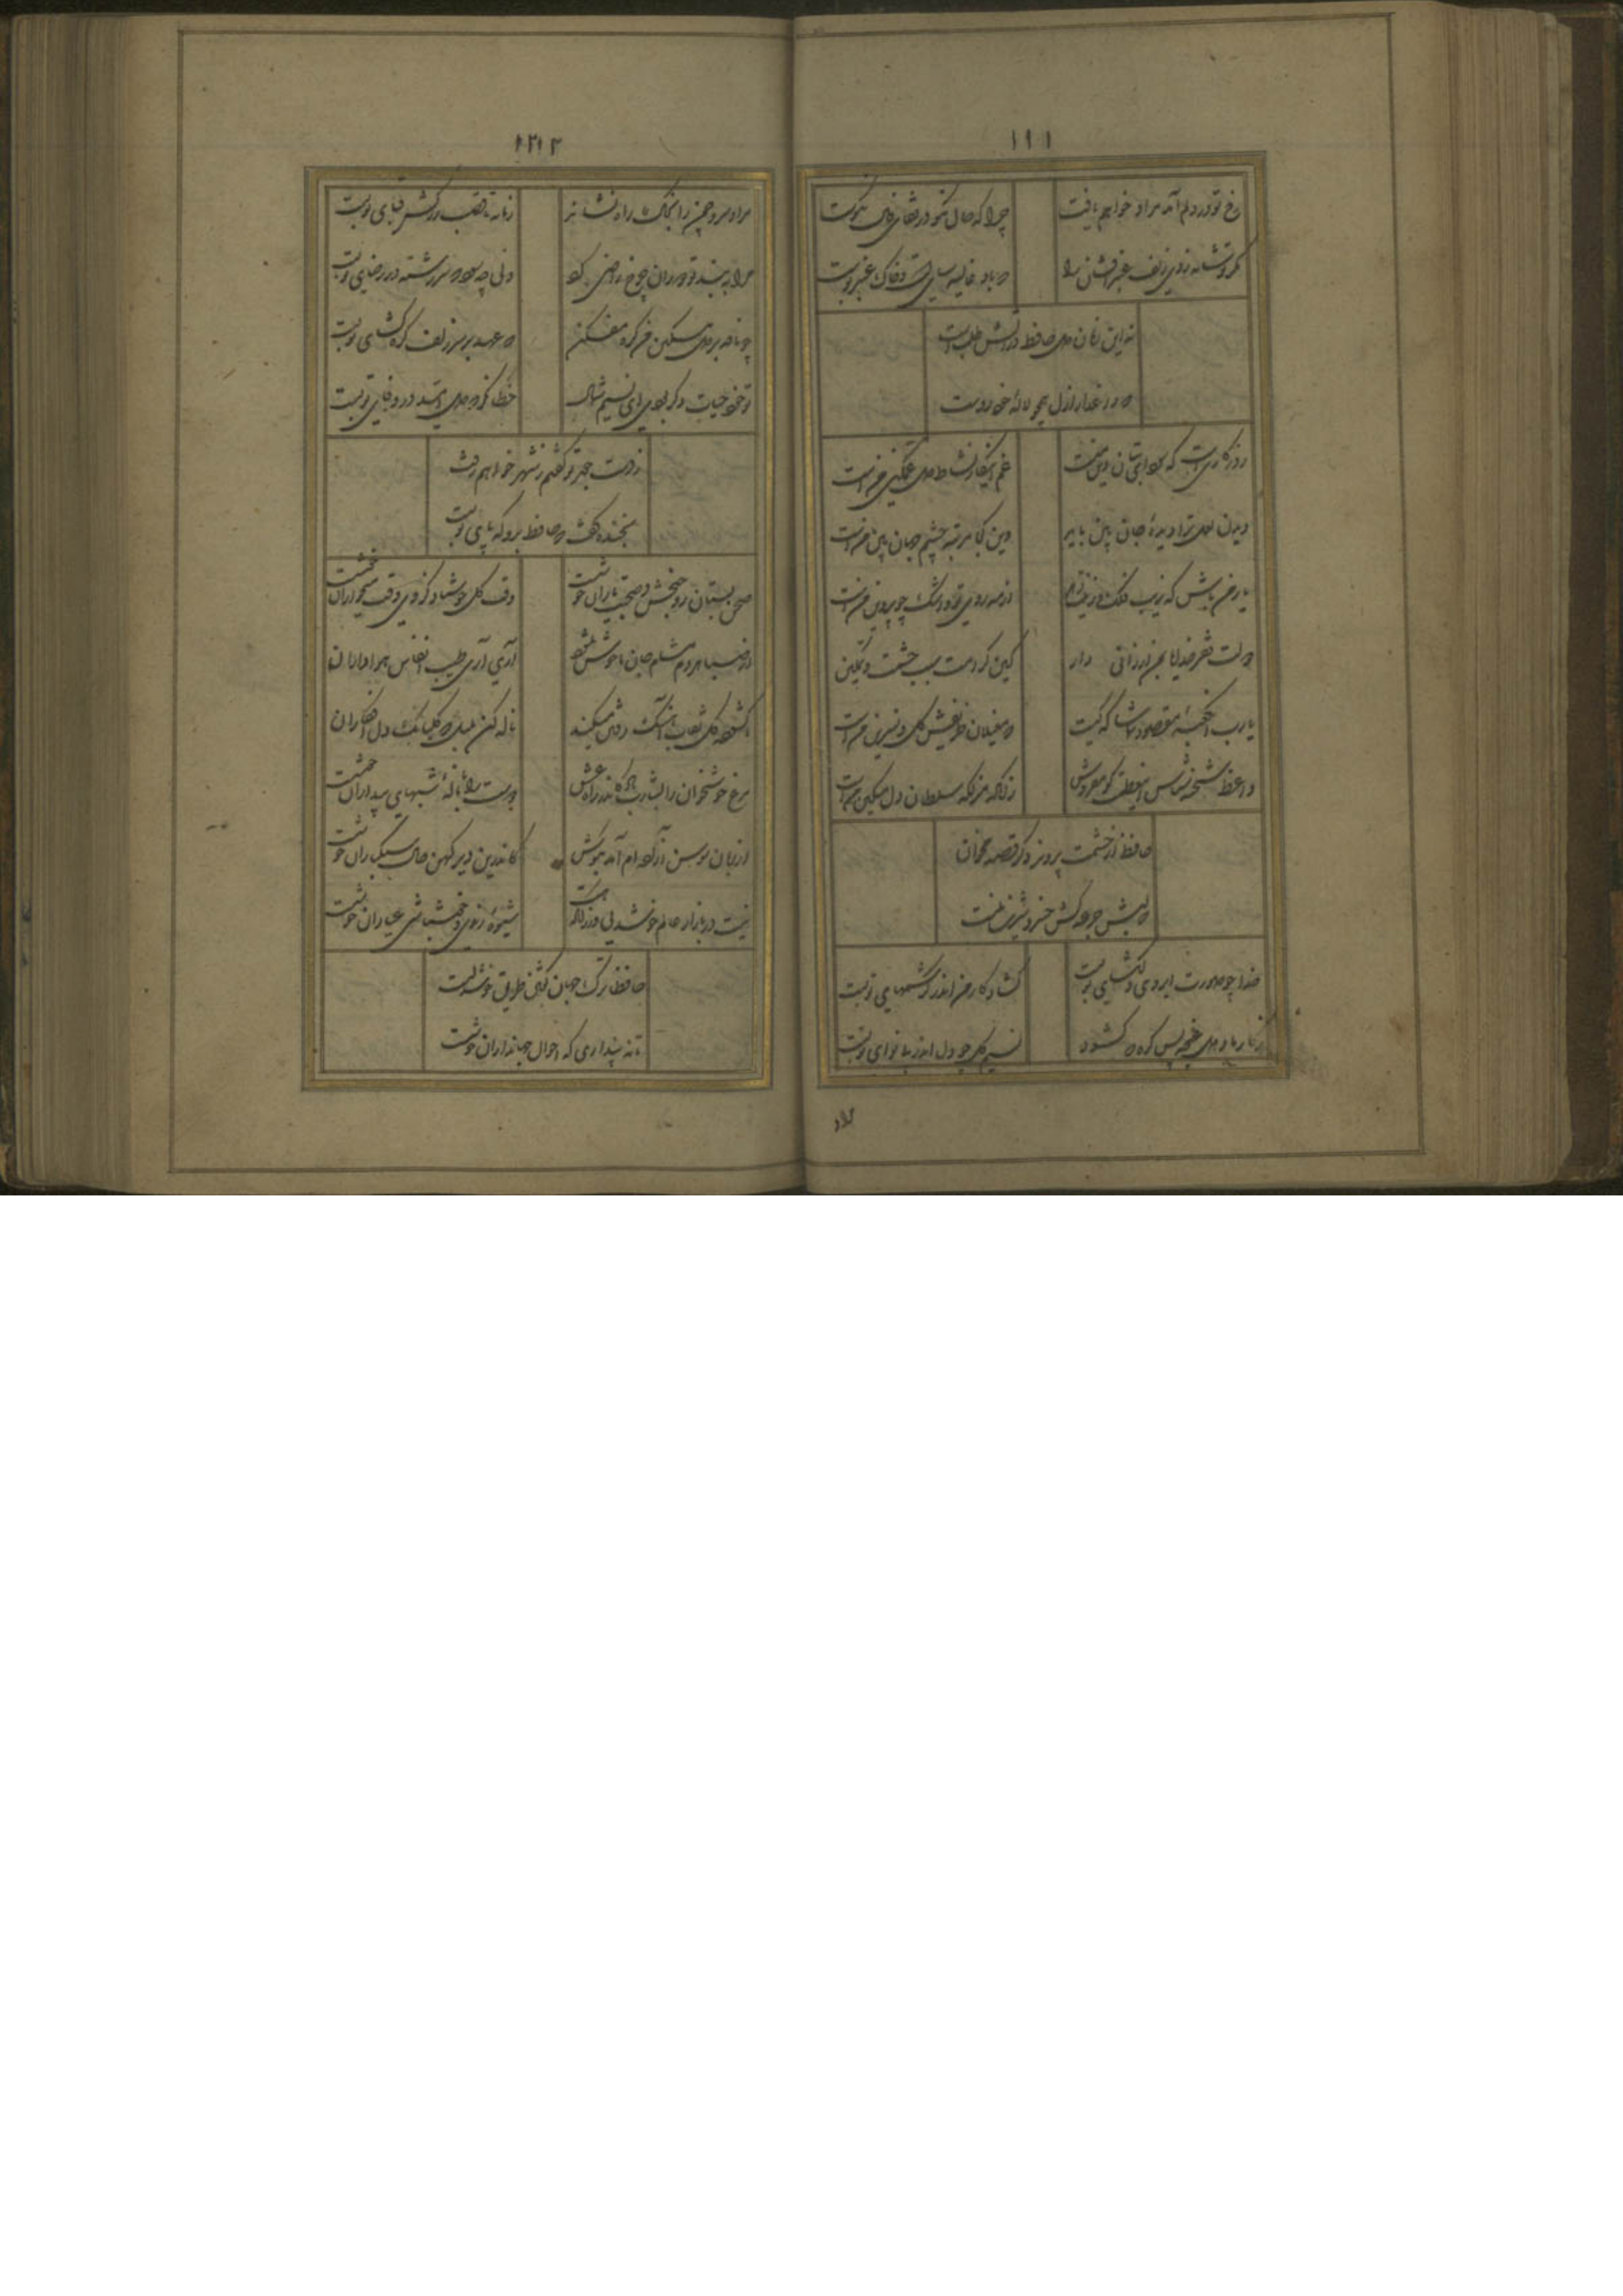 ۱۹۱
رخ تو در دلم آمد مراد خواهم یافت
چرا که حال نکو در قفای فال نکوست
مگر تو شانه زدی زلف عنبرافشان را
که باد غالیه سای است و خاک عنبر بوست
نه این زمان دل حافظ در آتش طلب است
که داغدار ازل همچو لاله خودروست
روزگاریست که سودای بتان دین منست
غم این کار نشاط دل غمگین منست
دیدن لعل ترا دیده جان بین باید
وین کجا مرتبه چشم جهان بین منست
یار من باش که زیب فلک و زینت
از مه روی تو و اشک چو پروین منست
دولت فقر خدایا بمن ارزانی دار
کین کرامت سبب حشمت و تمکین
یارب آن کعبه مقصود تماشاگه کیست
که مغیلان طریقش گل و نسرین منست
واعظ شحنه شناس این عظمت گو مفروش
زانکه منزلگه سلطان دل مسکین منست
حافظ از حشمت پرویز دگر قصه مخوان
که لبش جرعه کش خسرو شیرین منست
خدا چو صورت ابروی دلگشای تو بست
گشاد کار من اندر کرشمهای تو بست
ز کار ما و دل غنچه بس گره بگشود
نسیم گل چو دل اندر هوای تو بست
مرا و سرو چمن را بخاک راه نشاند
زمانه تا قصب نرگس قبای تو بست
مرا به بند تو دوران چرخ راضی کرد
ولی چه سود که سررشته در رضای تو بست
چو نافه بر دل مسکین من گره مفکن
که عهد با سر زلف گره گشای تو بست
تو خود حیات دگر بودی ای نسیم شمال
خطا نگر که دل امید در وفای تو بست
ز دست جور تو گفتم ز شهر خواهم رفت
بخنده گفت که حافظ برو که پای تو بست
صحن بستان ذوق بخش و صحبت یاران خوشست
وقت گل خوش باد کز وی وقت میخواران خوشست
از صبا هر دم مشام جان ما خوش میشود
آری آری طیب انفاس هواداران
ناگشوده گل نقاب آهنگ رحلت میکند
ناله کن بلبل که گلبانگ دل افکاران
مرغ خوشخوان را بشارت باد کاندر راه عشق
دوست را با ناله شبهای بیداران خوشست
از زبان سوسن آزاده ام آمد بگوش
کاندرین دیر کهن حال سبکباران خوشست
نیست در بازار عالم خوشدلی ور زانکه هست
شیوه رندی و خوشباشی عیاران خوشست
حافظا ترک جهان گفتن طریق خوشدلیست
تا نه پنداری که احوال جهانداران خوشست